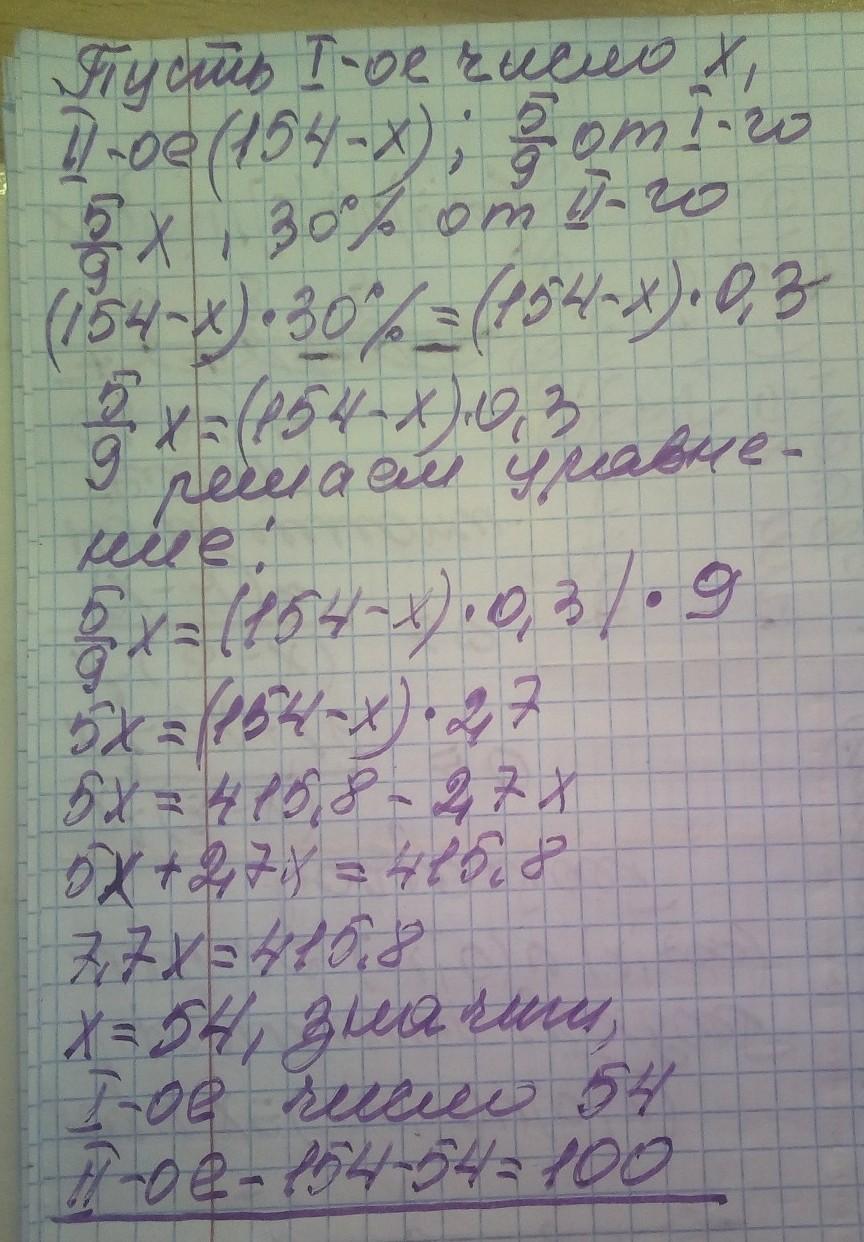 Пусть I-ое число x,
II-ое (154-x); 5/9 от I-го
5/9 x, 30% от II-го
(154-x)·30% = (154-x)·0,3
5/9 x = (154-x)·0,3
решаем уравне-
ние:
5/9 x = (154-x)·0,3 /·9
5x = (154-x)·2,7
5x = 415,8 - 2,7x
5x + 2,7x = 415,8
7,7x = 415,8
x = 54, значит,
I-ое число 54
II-ое - 154-54=100